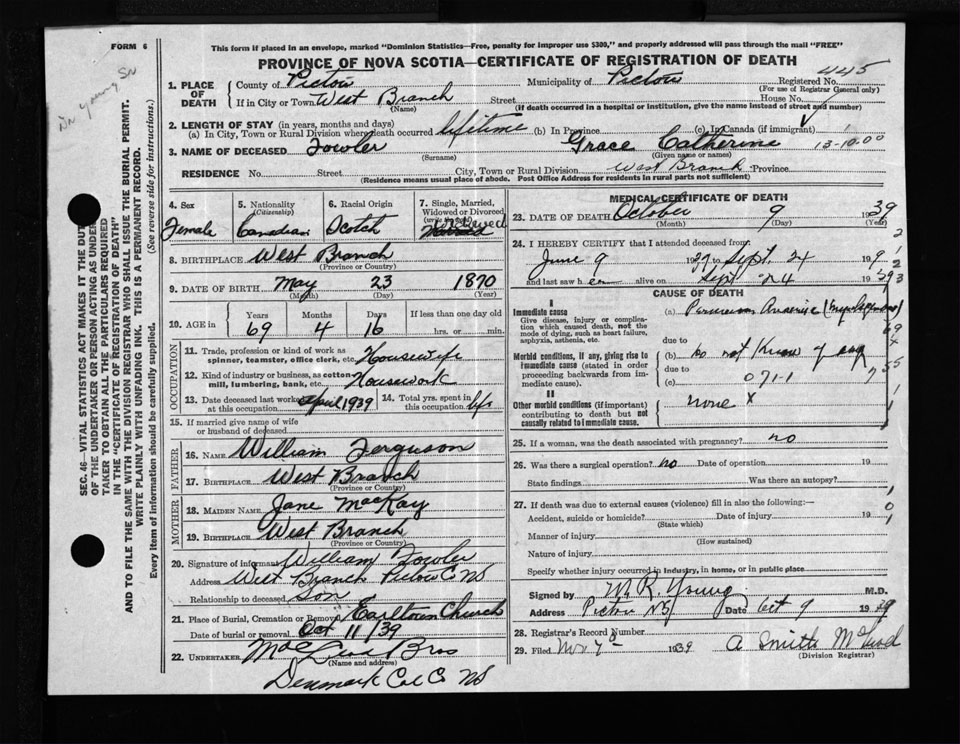 FORM 6
This form if placed in an envelope, marked "Dominion Statistics—Free, penalty for improper use $300," and properly addressed will pass through the mail "FREE"
PROVINCE OF NOVA SCOTIA—CERTIFICATE OF REGISTRATION OF DEATH
445
1. PLACE OF DEATH County of Pictou Municipality of Pictou Registered No.
(For use of Registrar General only)
If in City or Town West Branch Street House No.
(Name) (If death occurred in a hospital or institution, give the name instead of street and number)
2. LENGTH OF STAY (in years, months and days)
(a) In City, Town or Rural Division where death occurred lifetime (b) In Province (c) In Canada (if immigrant)
3. NAME OF DECEASED Fowler Grace Catherine 13-10-00
(Surname) (Given name or names)
RESIDENCE No. Street City, Town or Rural Division West Branch Province
(Residence means usual place of abode. Post Office Address for residents in rural parts not sufficient)
SEC. 46—VITAL STATISTICS ACT MAKES IT THE DUTY
OF THE UNDERTAKER OR PERSON ACTING AS UNDER-
TAKER TO OBTAIN ALL THE PARTICULARS REQUIRED
IN THE "CERTIFICATE OF REGISTRATION OF DEATH"
AND TO FILE THE SAME WITH THE DIVISION REGISTRAR WHO SHALL ISSUE THE BURIAL PERMIT.
WRITE PLAINLY WITH UNFADING INK. THIS IS A PERMANENT RECORD.
Every item of information should be carefully supplied. (See reverse side for instructions.)
4. Sex 5. Nationality (Citizenship) 6. Racial Origin 7. Single, Married, Widowed or Divorced
Female Canadian Scotch Widowed
8. BIRTHPLACE West Branch
(Province or Country)
9. DATE OF BIRTH May 23 1870
(Month) (Day) (Year)
10. AGE in Years Months Days If less than one day old
69 4 16 hrs. or min.
OCCUPATION
11. Trade, profession or kind of work as spinner, teamster, office clerk, etc. Housewife
12. Kind of industry or business, as cotton-mill, lumbering, bank, etc. Housework
13. Date deceased last worked at this occupation April 1939 14. Total yrs. spent in this occupation life
15. If married give name of wife or husband of deceased
FATHER
16. NAME William Ferguson
17. BIRTHPLACE West Branch
(Province or Country)
MOTHER
18. MAIDEN NAME Jane MacKay
19. BIRTHPLACE West Branch
(Province or Country)
20. Signature of informant William Fowler
Address West Branch Pictou Co NS
Relationship to deceased Son
21. Place of Burial, Cremation or Removal Earltown Church
Date of burial or removal Oct 11/39
22. UNDERTAKER Bros
(Name and address)
Denmark Col Co NS
MEDICAL CERTIFICATE OF DEATH
23. DATE OF DEATH October 9 1939
(Month) (Day) (Year)
24. I HEREBY CERTIFY that I attended deceased from:
June 9 1939 to Sept. 24 19
and last saw h alive on Sept 24 1939
CAUSE OF DEATH
I
Immediate cause
Give disease, injury or complication which caused death, not the mode of dying, such as heart failure, asphyxia, asthenia, etc.
(a) Pernicious Anaemia
due to
Morbid conditions, if any, giving rise to immediate cause (stated in order proceeding backwards from immediate cause).
(b) do not know of any
due to
(c) 071-1
II
Other morbid conditions (if important) contributing to death but not causally related to immediate cause.
none x
25. If a woman, was the death associated with pregnancy? no
26. Was there a surgical operation? no Date of operation 19
State findings Was there an autopsy?
27. If death was due to external causes (violence) fill in also the following:—
Accident, suicide or homicide? Date of injury 19
(State which)
Manner of injury
(How sustained)
Nature of injury
Specify whether injury occurred in industry, in home, or in public place
Signed by M. R. Young M.D.
Address Pictou NS Date Oct 9 1939
28. Registrar's Record Number
29. Filed Nov 7 1939 A Smith
(Division Registrar)